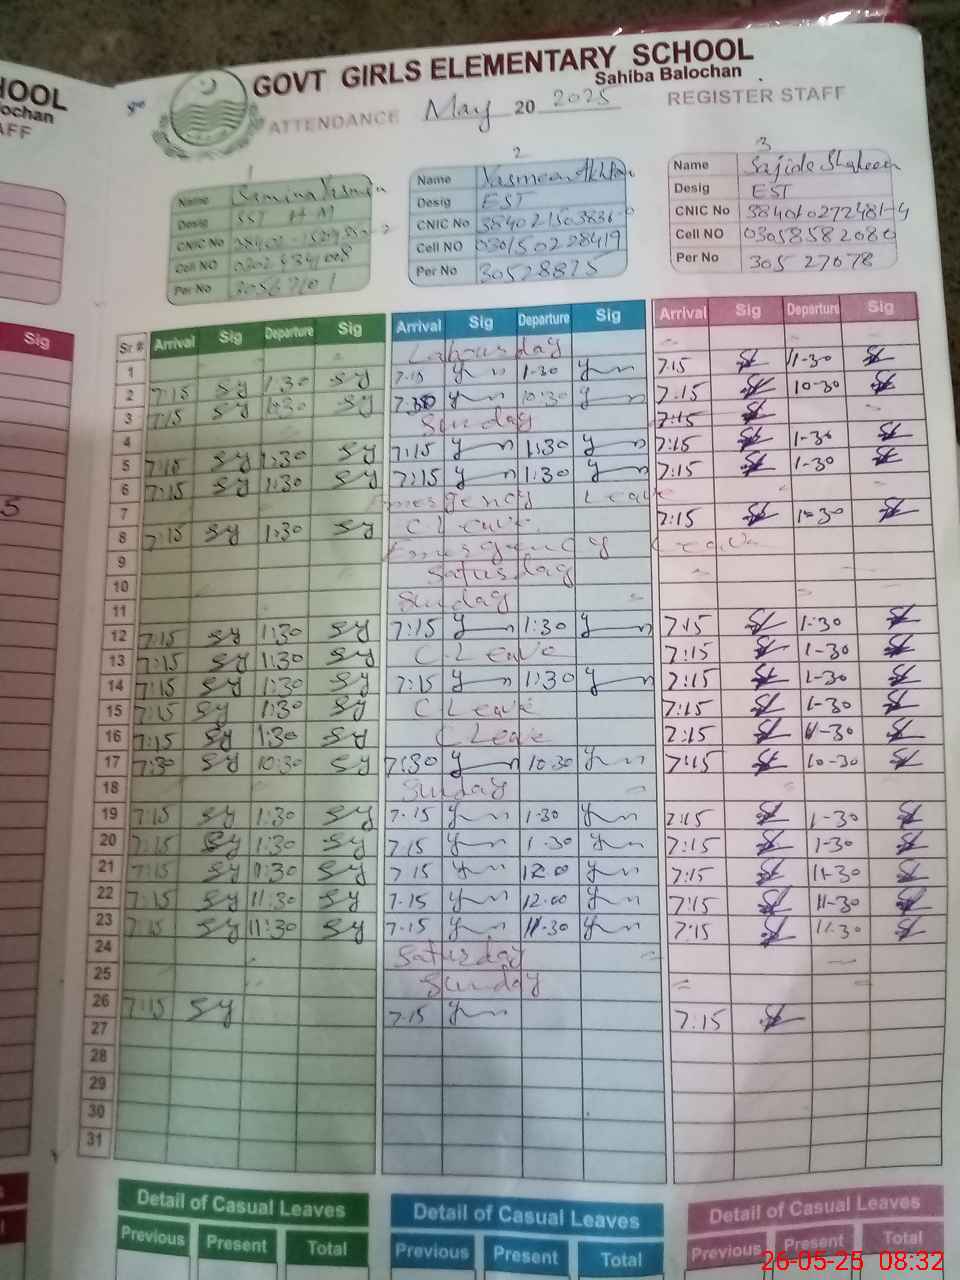 HOOL
ochan
AFF
Sig
5
GOVT GIRLS ELEMENTARY SCHOOL
Sahiba Balochan
ATTENDANCE May 20 2025 REGISTER STAFF
1
Name Samina Yasmin
Desig SST H M
CNIC No
Cell NO
Per No
2
Name Yasmeen Akhtar
Desig EST
CNIC No
Cell NO 03015022 8419
Per No 30528875
3
Name Sajida Shaheen
Desig EST
CNIC No 384010272481-4
Cell NO 03058582080
Per No 305 27078
Sr # Arrival Sig Departure Sig Arrival Sig Departure Sig Arrival Sig Departure Sig
1 Labour day
2 7:15 sy 1:30 sy 7.15 1.30 7.15 1-30
3 7:15 sy sy 10:30 7:15 10-30
4 Sunday 7:15
5 7:15 sy 1:30 sy 7:15 1:30 7:15 1-30
6 7:15 sy 1:30 sy 7:15 1:30 7:15 1-30
7 Emergency Leave
8 7:15 sy 1:30 sy C.Leave 7:15 1-30
9 Emergency Leave
10 Saturday
11 Sunday
12 7:15 sy 1:30 sy 7:15 1:30 7:15 1-30
13 7:15 sy 1:30 sy C.Leave 7:15 1-30
14 7:15 sy 1:30 sy 7:15 1:30 7:15 1-30
15 7:15 sy 1:30 sy C Leave 7:15 1-30
16 7:15 sy 1:30 sy C Leave 7:15 1-30
17 7:30 sy 10:30 sy 7:30 10:30 7:15 10-30
18 Sunday
19 7:15 sy 1:30 sy 7.15 1.30 7:15 1-30
20 7:15 sy 1:30 sy 7.15 1.30 7:15 1-30
21 7:15 sy sy 7.15 12.00 7:15 11-30
22 7:15 sy 11:30 sy 7.15 12.00 7:15 11-30
23 7:15 sy 11:30 sy 7.15 11.30 7:15 11.30
24 Saturday
25 Sunday
26 7:15 sy 7.15 7:15
27
28
29
30
31
Detail of Casual Leaves Detail of Casual Leaves Detail of Casual Leaves
Previous Present Total Previous Present Total Previous Present Total
26-05-25 08:32